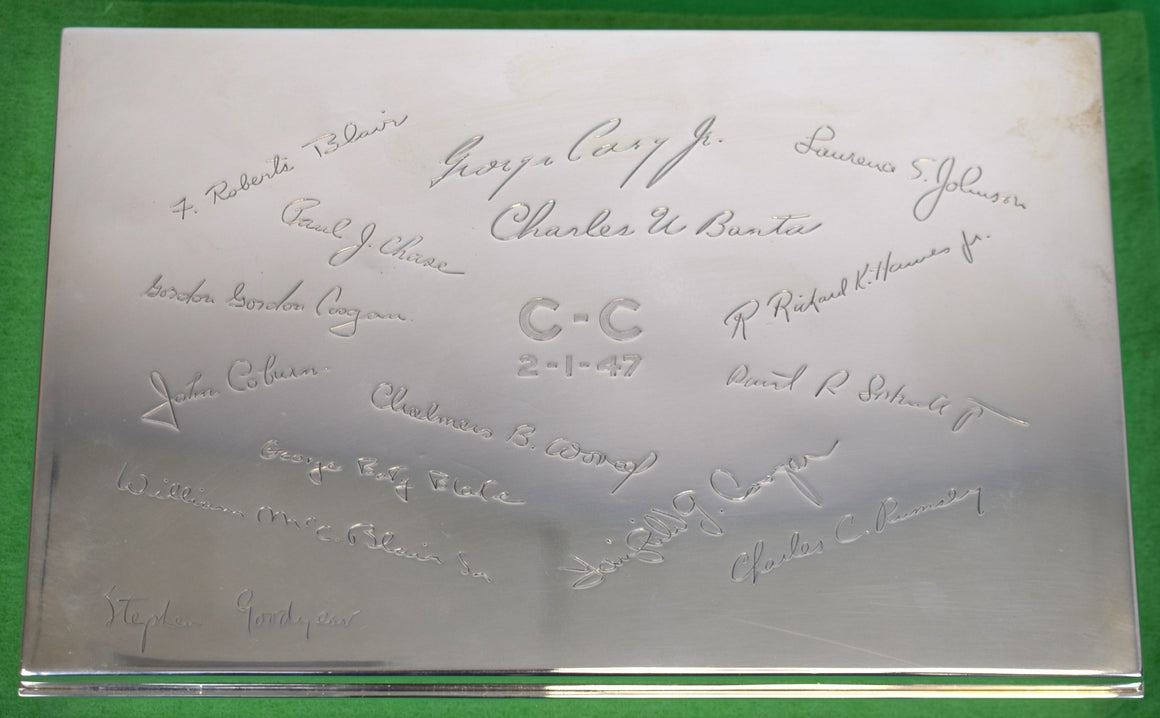 F. Roberts Blair
George Cary Jr.
Laurence S. Johnson
Paul J. Chase
Charles U Banta
Gordon Gordon Coogan
R Richard K. Hawes Jr.
C-C
2-1-47
John Coburn
Chalmers B. Wood
R
George Baty Blake
G. Cooper
William McC. Blair
Charles C. Rumsey
Stephen Goodyear